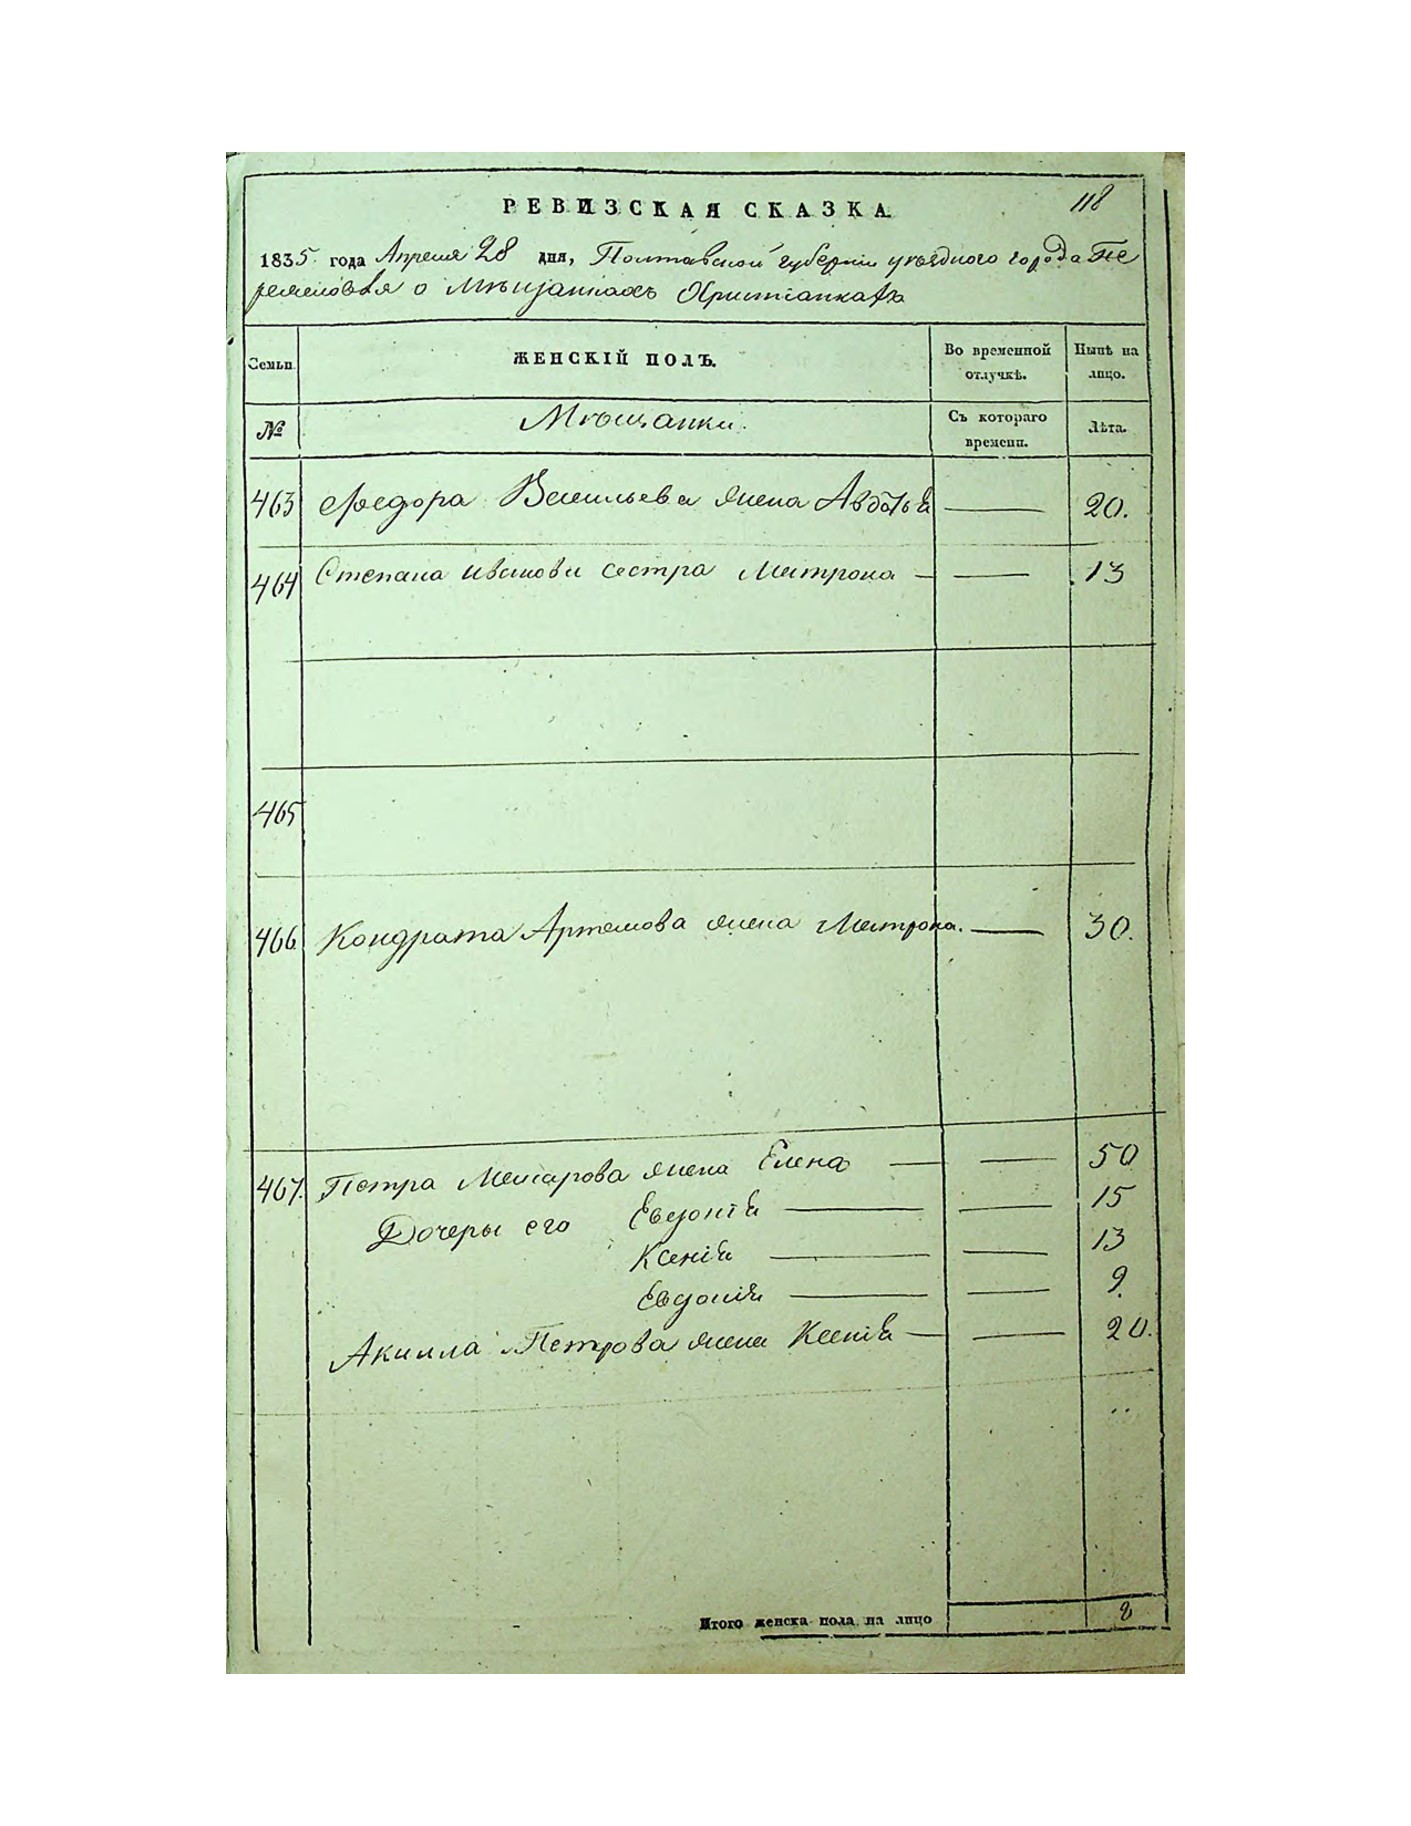 118
РЕВИЗСКАЯ СКАЗКА.
1835 года Апреля 28 дня, Полтавской губернии уѣздного города Пе
реяслова о Мѣщанкахъ Христіанкахъ
Семьи. ЖЕНСКІЙ ПОЛЪ. Во временной отлучкѣ. Нынѣ на лицо.
№ Мѣщанки. Съ котораго времени. Лѣта.
463 Федора Васильева жена Авдотья — 20.
464 Степана Иванова сестра Матрона — — 13
465
466 Кондрата Артемова жена Матрона. — 30.
467. Петра жена Елена — — 50
Дочеры его Евдокія — — 15
Ксенія — — 13
Евдокія — — 9.
Акилла Петрова жена Ксенія — — 20.
Итого женска пола на лицо 8